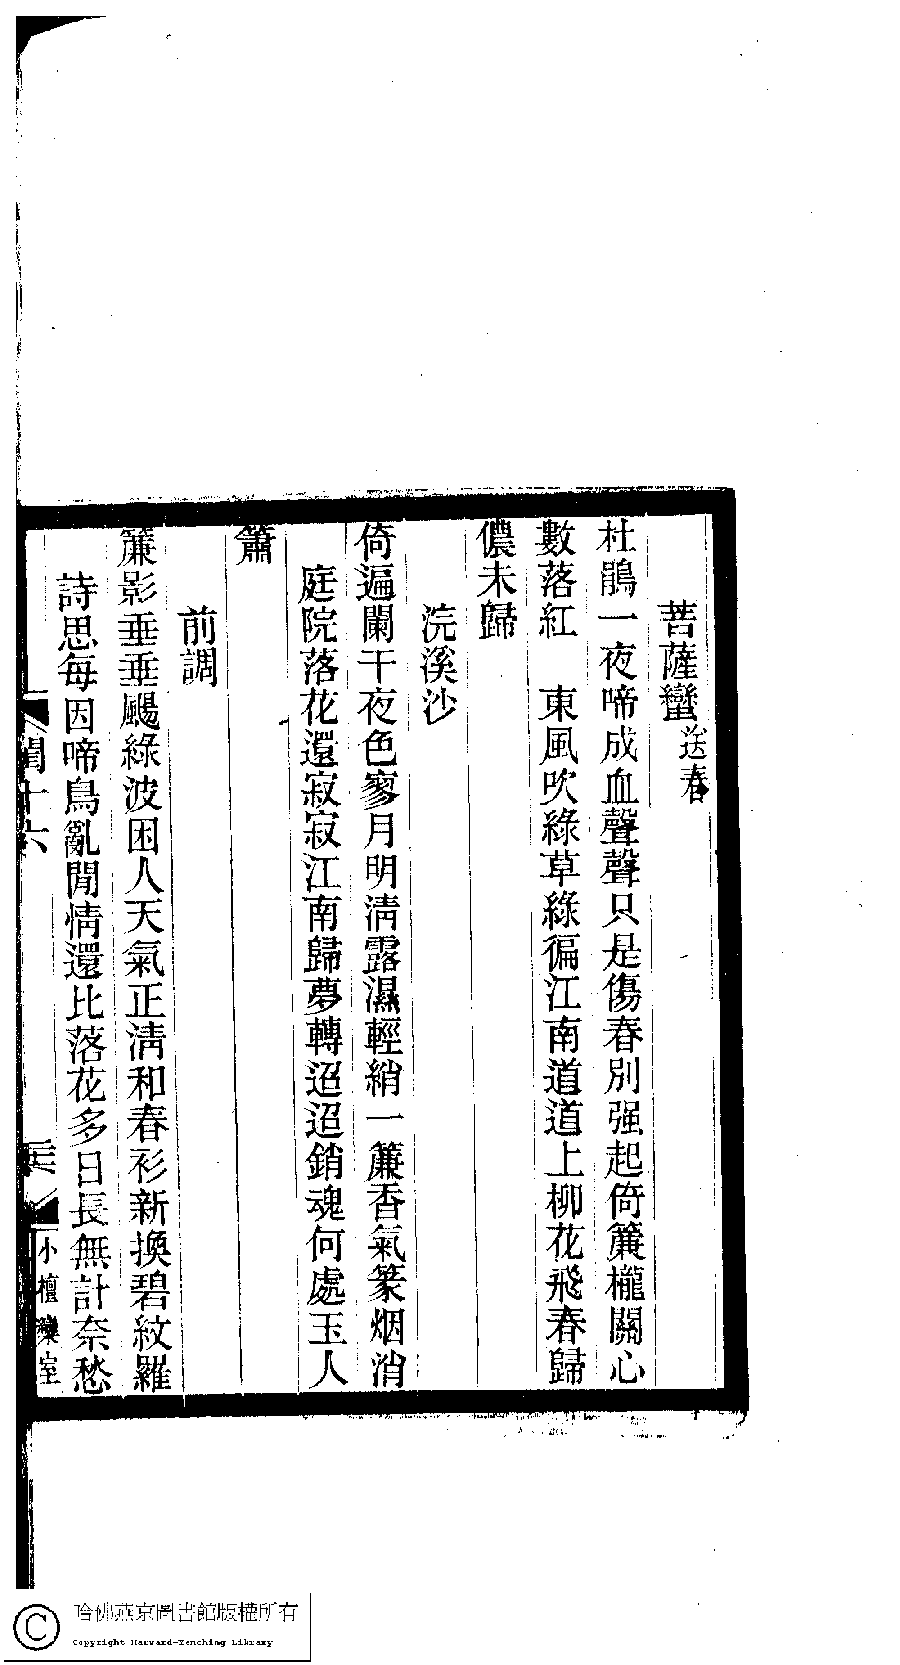 菩薩蠻送春
杜鵑一夜啼成血聲聲只是傷春別强起倚簾櫳關心
數落紅　東風吹綠草綠徧江南道道上柳花飛春歸
儂未歸
浣溪沙
倚遍闌干夜色寥月明清露濕輕綃一簾香氣篆烟消
庭院落花還寂寂江南歸夢轉迢迢銷魂何處玉人
簫
前調
簾影垂垂颺綠波困人天氣正清和春衫新換碧紋羅
詩思每因啼鳥亂閒情還比落花多日長無計奈愁
閨十六
小檀欒室
哈佛燕京圖書館版權所有
Copyright Harvard-Yenching Library